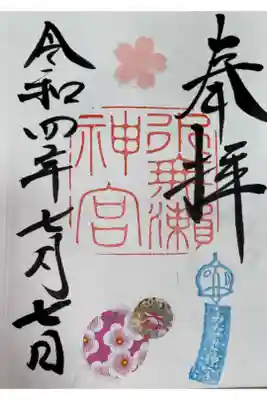 奉拝
水無瀬
神宮
令和四年七月七日